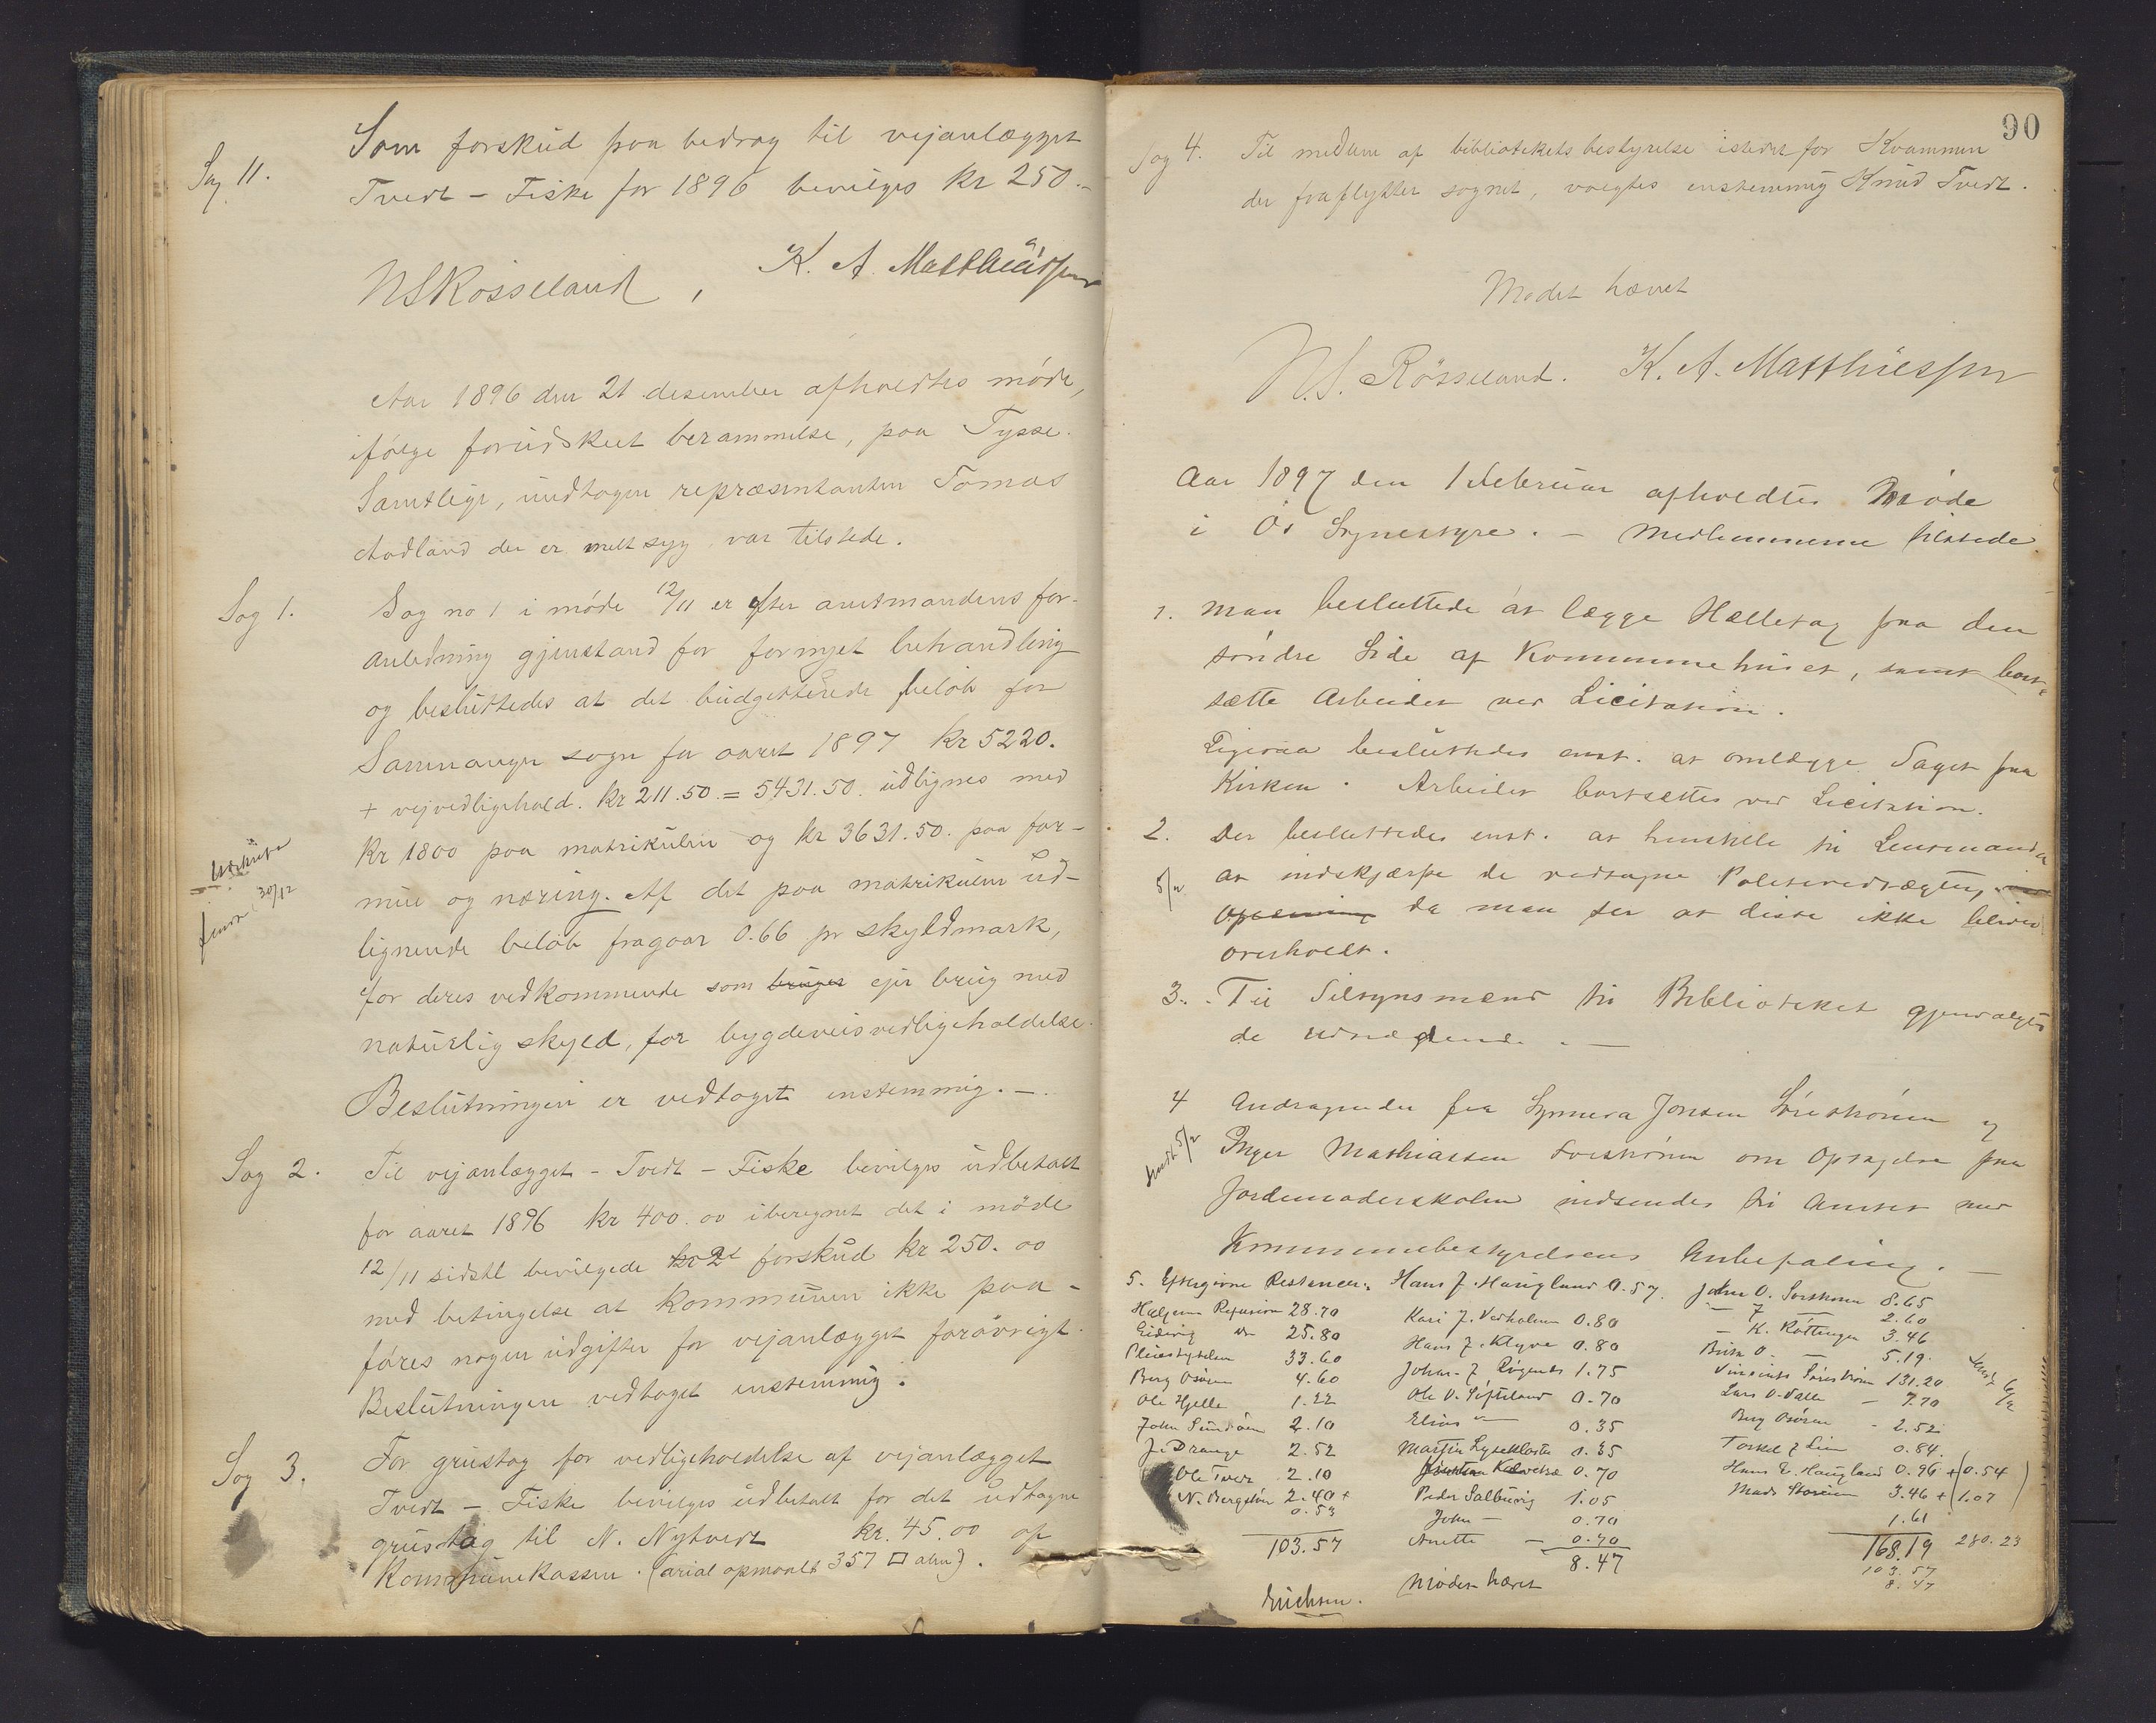 Sag 11.
Som forskud paa bedrag til vejanlægget
Tvedt - Fiske for 1896 bevilges kr 250.-
N S Røsseland , K. A. Matthiesen
Aar 1896 den 21 desember afholdtes møde,
ifølge forudskeet berammelse, paa Tysse.
Samtlige, undtagen repræsentanten Tomas
Aadland der er meldt syg var tilstede.
Sag 1.
Sag no 1 i møde 12/11 er efter amtmandens for-
anledning gjenstand for fornyet behandling
og besluttedes at det budgetterede beløb for
Samnanger sogn for aaret 1897 kr 5220.
+ vejvedligehold. kr 211.50. = 5431.50. udlignes med
kr 1800 paa matrikulen og kr 3631.50. paa for-
mue og næring. Af det paa matrikulen ud-
lignende beløb fragaar 0.66 pr skyldmark,
for deres vedkommende som bruger ejer brug med
naturlig skyld, for bygdeveisvedligeholdelse.
Beslutningen er vedtaget enstemmig. -
30/12
Sag 2.
Til vejanlægget - Tvedt - Fiske bevilges udbetalt
for aaret 1896 kr 400.00 iberegnet det i møde
12/11 sidstl bevilgede forskud kr 250.00
med betingelse at kommunen ikke paa-
føres nogen udgifter for vejanlægget forøvrigt.
Beslutningen vedtaget enstemmig.
Sag 3.
For grustag for vedligeholdelse af vejanlægget
Tvedt - Fiske bevilges udbetalt for det udtagne
grustag til N. Nytvedt kr. 45.00 af
Kommunekassen. (arial opmaalt 357 □ alen).
90
Sag 4.
Til medlem af bibliotekets bestyrelse istedet for Kvammen
der fraflytter sognet, valgtes enstemmig Knud Tvedt.
Mødet hævet
N. S. Røsseland. K. A. Matthiesen
Aar 1897 den 1 Februar afholdtes Møde
i Os Sognestyre. - Medlemmerne tilstede
1. Man besluttede at lægge Helletag paa den
søndre Side af Kommunehuset, samt bort-
sætte Arbeidet ved Licitation.
Ligesaa besluttedes enst. at omlægge Taget paa
Kirken. Arbeidet bortsættes ved Licitation.
2. Der besluttedes enst. at henstille til Lensmanden
at indskjærpe de vedtagne Politivedtægter,
da man ser at disse ikke bliver
overholdt.
3. Til Tilsynsmænd til Biblioteket gjenvalgtes
de udtrædende. -
4 Andragender fra Synneva Jonsen Sørstrønen og
Inger Mathiassen Sørstrønen om Optagelse paa
Jordemoderskolen indsendes til Amtet med
Kommunebestyrelsens Anbefaling. -
sendt 5/2
5. Eftergivne Restancer: Hans J. Haugland 0.57. John O. Sørstrønen 8.65
Refusion 28.70 Kari J. Vedholmen 0.80 2.60
25.80 Hans J. Klyve 0.80 - K. Røttingen 3.46
33.60 Johan J. 1.75 Brita O. - 5.19.
Berg Osøren 4.60 Ole O. Søfteland 0.70 Sørstrønen 131.20
Ole Hjelle 1.22 Elias 0.35 Lars O. Valle - 7.70
John Sundøen 2.10 Martin Lysekloster 0.35 Berg Osøren - 2.52
J. Drange 2.52 0.70 Torkel J Lien 0.84.
Ole Tveit 2.10 Peder Salbuvig 1.05 Hans L. Haugland 0.96 + (0.54)
N. Bergslien 2.40+ John - 0.70 Mads Storeim 3.46 + (1.07)
0.53 Anette - 0.70 1.61
103.57 8.47 168.19 280.23
103.57
8.47
Erichsen. Mødet hævet